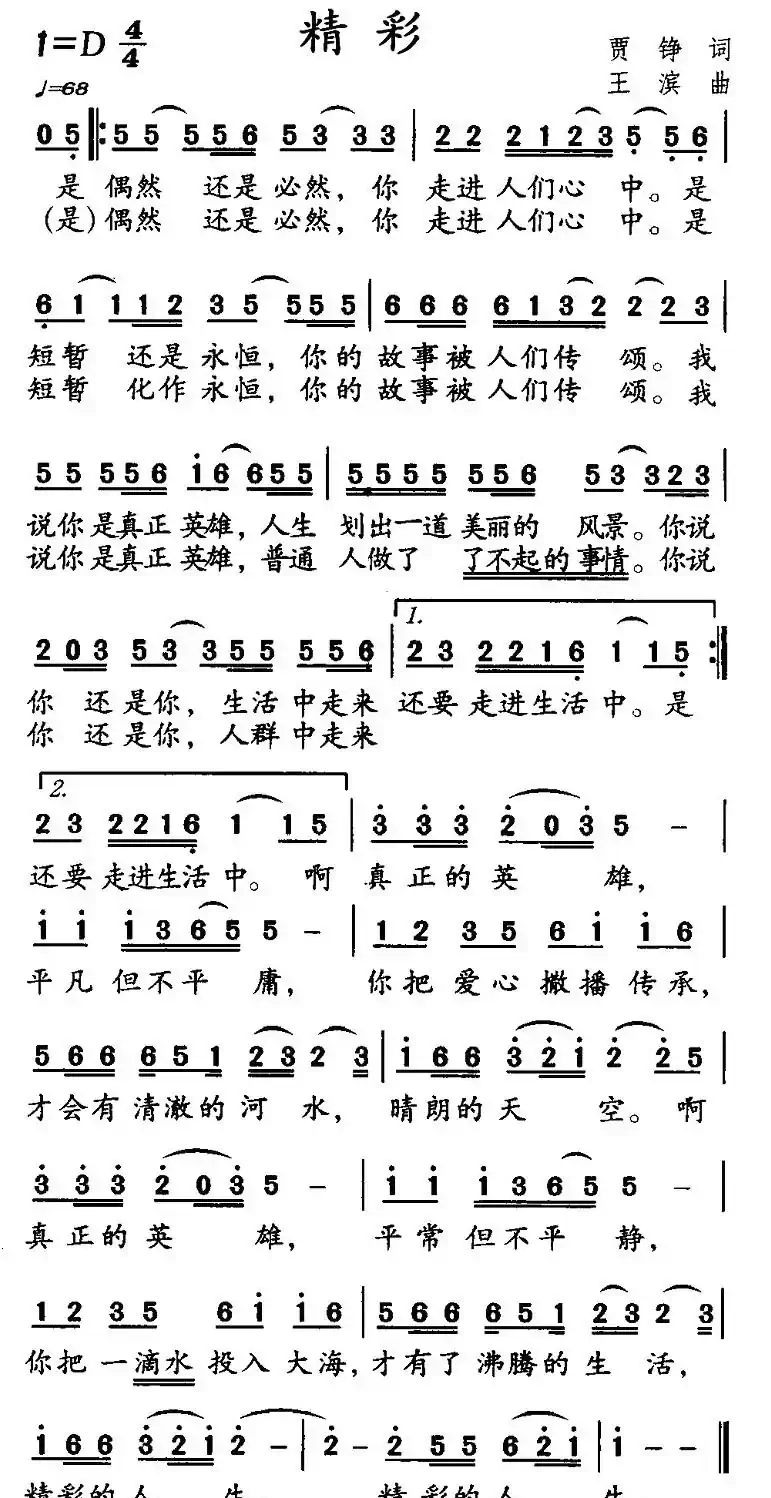 精彩
1=D 4/4
♩=68
贾铮 词
王滨 曲
0 5 5 5 5 5 6 5 3 3 3 | 2 2 2 1 2 3 5 5 6 |
是 偶然 还是必然，你 走进人们心 中。是
(是)偶然 还是必然，你 走进人们心 中。是
6 1 1 1 2 3 5 5 5 5 | 6 6 6 6 1 3 2 2 2 3 |
短暂 还是永恒，你的故事被人们传 颂。我
短暂 化作永恒，你的故事被人们传 颂。我
5 5 5 5 6 1 6 6 5 5 | 5 5 5 5 5 5 6 5 3 3 2 3
说你是真正英雄，人生 划出一道美丽的 风景。你说
说你是真正英雄，普通 人做了 了不起的事情。你说
1.
2 0 3 5 3 3 5 5 5 5 6 | 2 3 2 2 1 6 1 1 5
你 还是你，生活中走来 还要走进生活中。是
你 还是你，人群中走来
2.
2 3 2 2 1 6 1 1 5 | 3 3 3 2 0 3 5 - |
还要走进生活中。啊 真正的英 雄，
1 1 1 3 6 5 5 - | 1 2 3 5 6 1 1 6 |
平凡但不平 庸，你把爱心撒播传承，
5 6 6 6 5 1 2 3 2 3 | 1 6 6 3 2 1 2 2 5 |
才会有清澈的河 水，晴朗的天 空。啊
3 3 3 2 0 3 5 - | 1 1 1 3 6 5 5 - |
真正的英 雄，平常但不平 静，
1 2 3 5 6 1 1 6 | 5 6 6 6 5 1 2 3 2 3
你把一滴水投入大海，才有了沸腾的生 活，
1 6 6 3 2 1 2 - | 2 - 2 5 5 6 2 1 | 1 - -
精彩的人 生， 精彩的人 生。